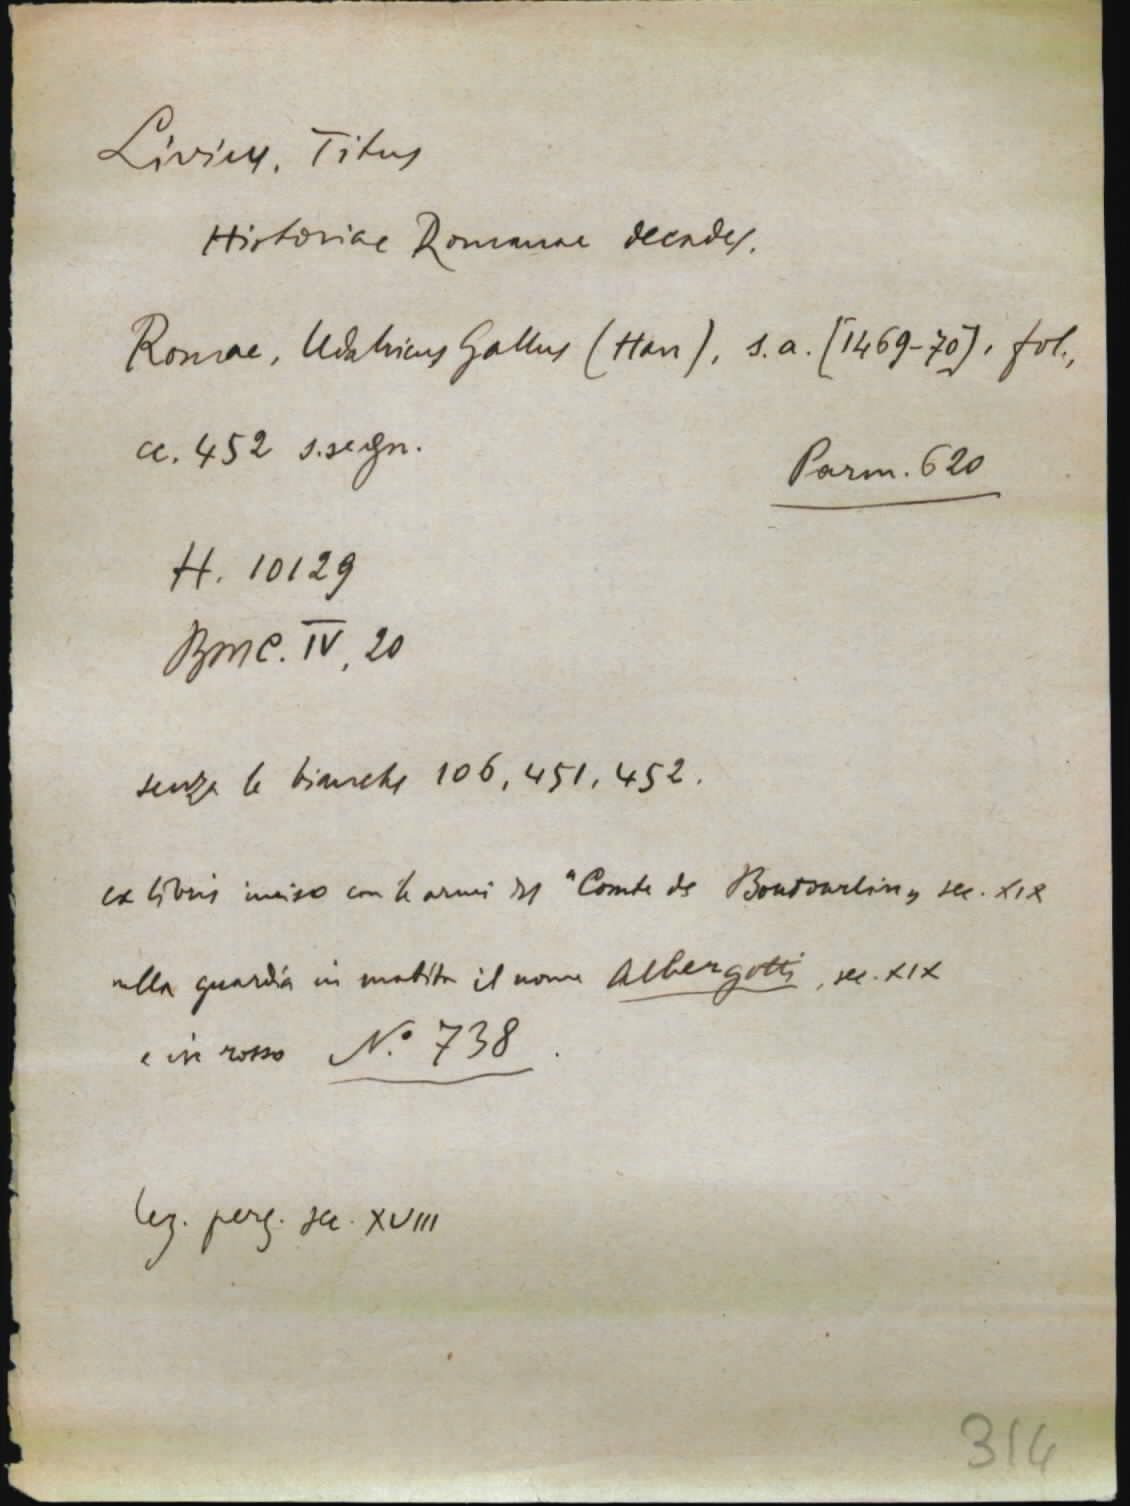 Livius, Titus
Historiae Romanae decades.
Romae, Udalricus Gallus (Han), s.a. [1469-70], fol.,
cc. 452 s.segn.
Parm. 620
H. 10129
BMC. IV, 20
senza le bianche 106, 451, 452.
ex libris inciso con le armi del "Comte de Boutourlin" sec. XIX
nella guardia in matita il nome Albergotti, sec. XIX
e in rosso N.° 738.
leg. perg. sec. XVIII
314